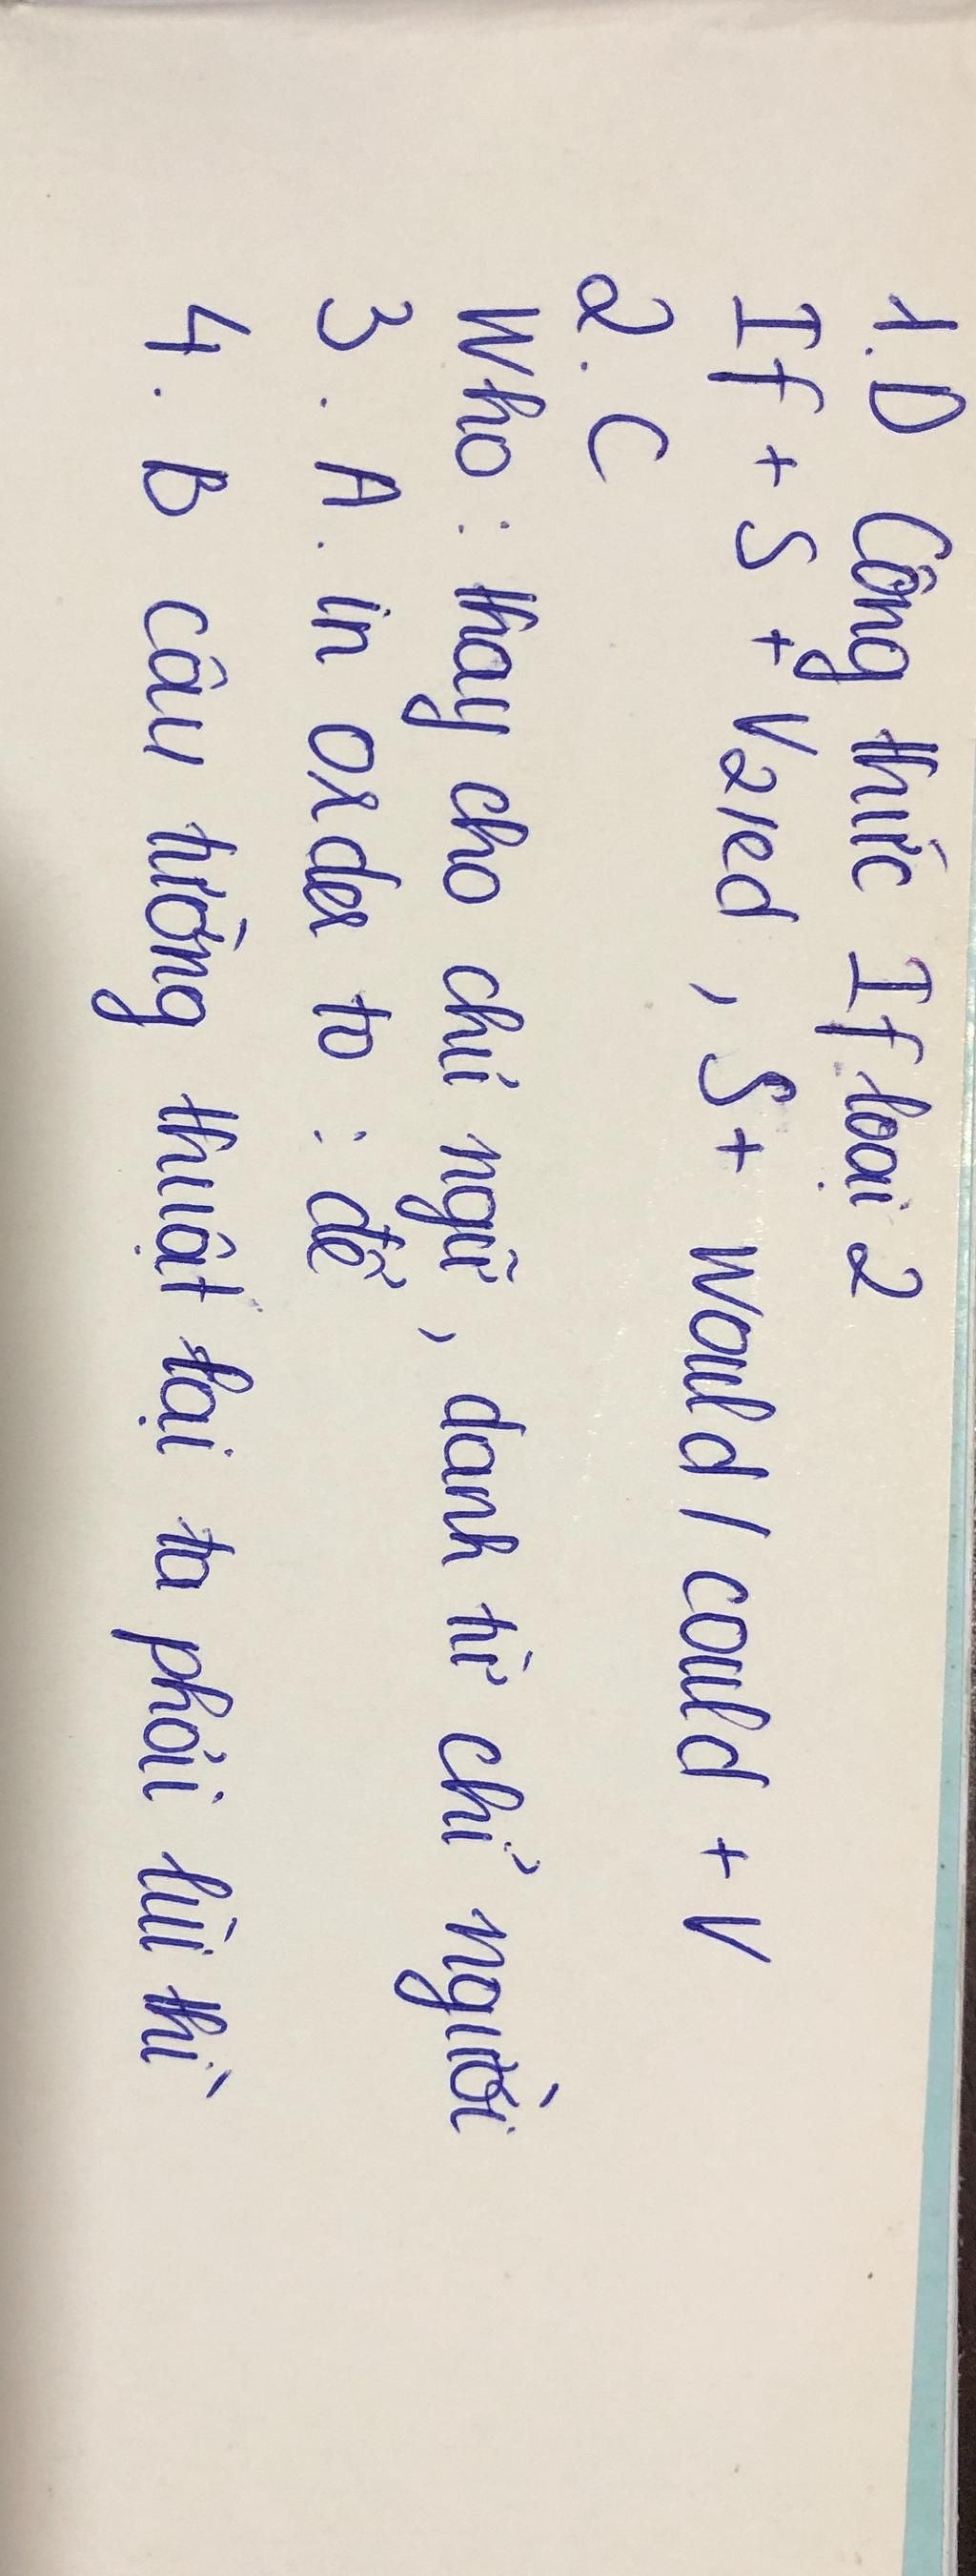 1. D Công thức If loại 2
If + S + V2/ed , S + would / could + V
2. C
Who : thay cho chủ ngữ , danh từ chỉ người
3 . A . in order to : để
4 . B câu tường thuật lại ta phải lùi thì